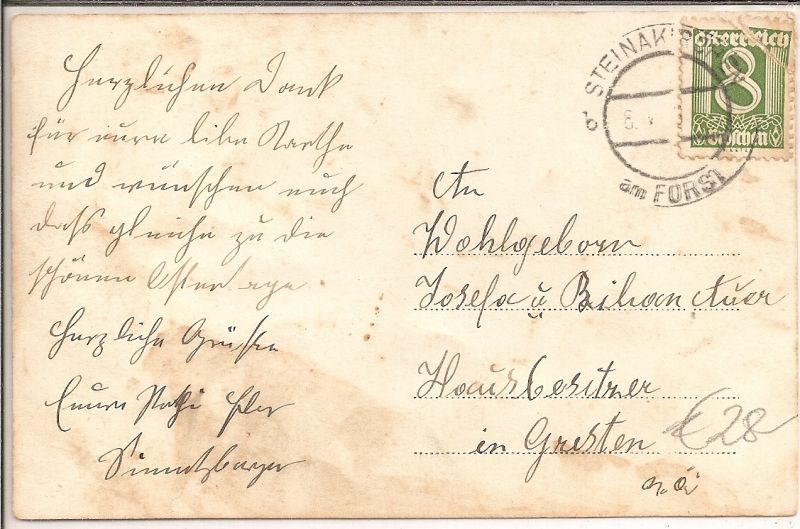 Herzlichen Dank
für eure liebe Karthe
und wünschen euch
dass gleiche zu die
schönen Ostertage
Herzliche Grüße
Eure
STEINAKIRCHEN
am FORST
b
8.
Österreich
18
Groschen
An
Wohlgeborn
Josefa u. Auer
Hausbesitzer
in Gresten
€28